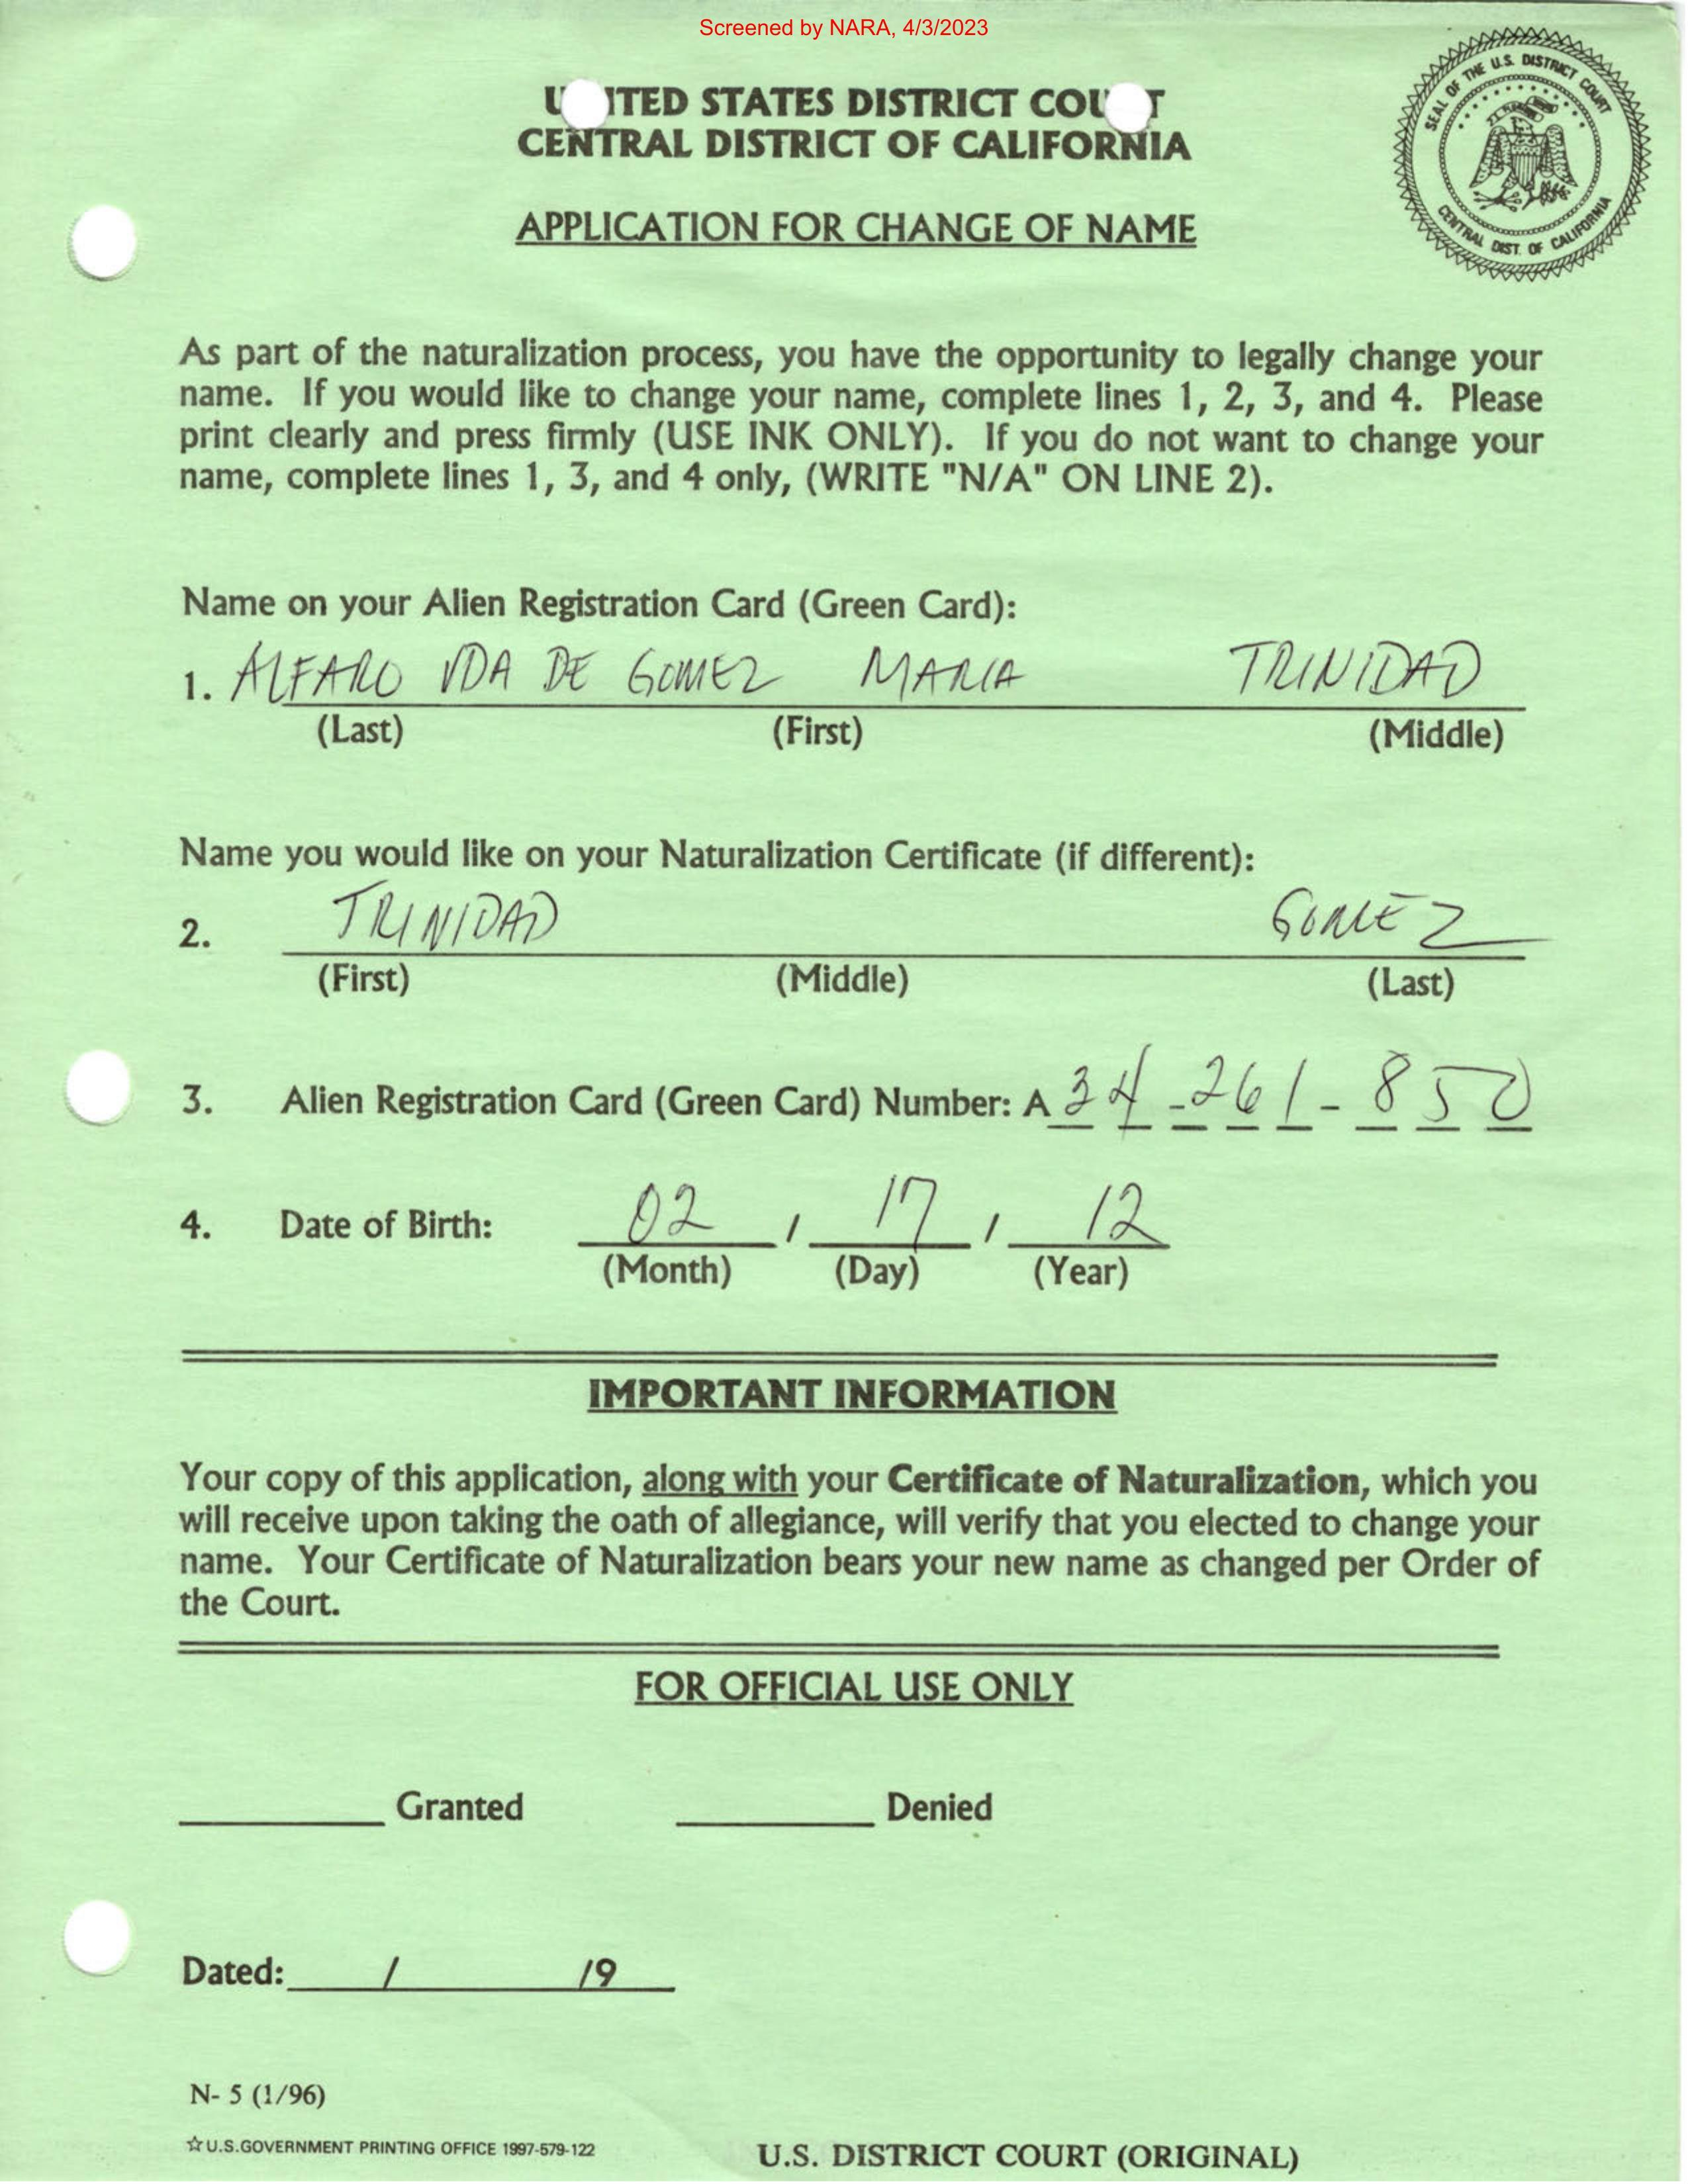 Screened by NARA, 4/3/2023
UNITED STATES DISTRICT COURT
CENTRAL DISTRICT OF CALIFORNIA
SEAL OF THE U.S. DISTRICT COURT
CENTRAL DIST. OF CALIFORNIA
APPLICATION FOR CHANGE OF NAME
As part of the naturalization process, you have the opportunity to legally change your
name. If you would like to change your name, complete lines 1, 2, 3, and 4. Please
print clearly and press firmly (USE INK ONLY). If you do not want to change your
name, complete lines 1, 3, and 4 only, (WRITE "N/A" ON LINE 2).
Name on your Alien Registration Card (Green Card):
1. ALFARO VDA DE GOMEZ MARIA TRINIDAD
(Last) (First) (Middle)
Name you would like on your Naturalization Certificate (if different):
2. TRINIDAD GOMEZ
(First) (Middle) (Last)
3. Alien Registration Card (Green Card) Number: A 34-261-850
4. Date of Birth: 02 / 17 / 12
(Month) (Day) (Year)
IMPORTANT INFORMATION
Your copy of this application, along with your Certificate of Naturalization, which you
will receive upon taking the oath of allegiance, will verify that you elected to change your
name. Your Certificate of Naturalization bears your new name as changed per Order of
the Court.
FOR OFFICIAL USE ONLY
Granted Denied
Dated: / /9
N- 5 (1/96)
☆U.S.GOVERNMENT PRINTING OFFICE 1997-579-122
U.S. DISTRICT COURT (ORIGINAL)